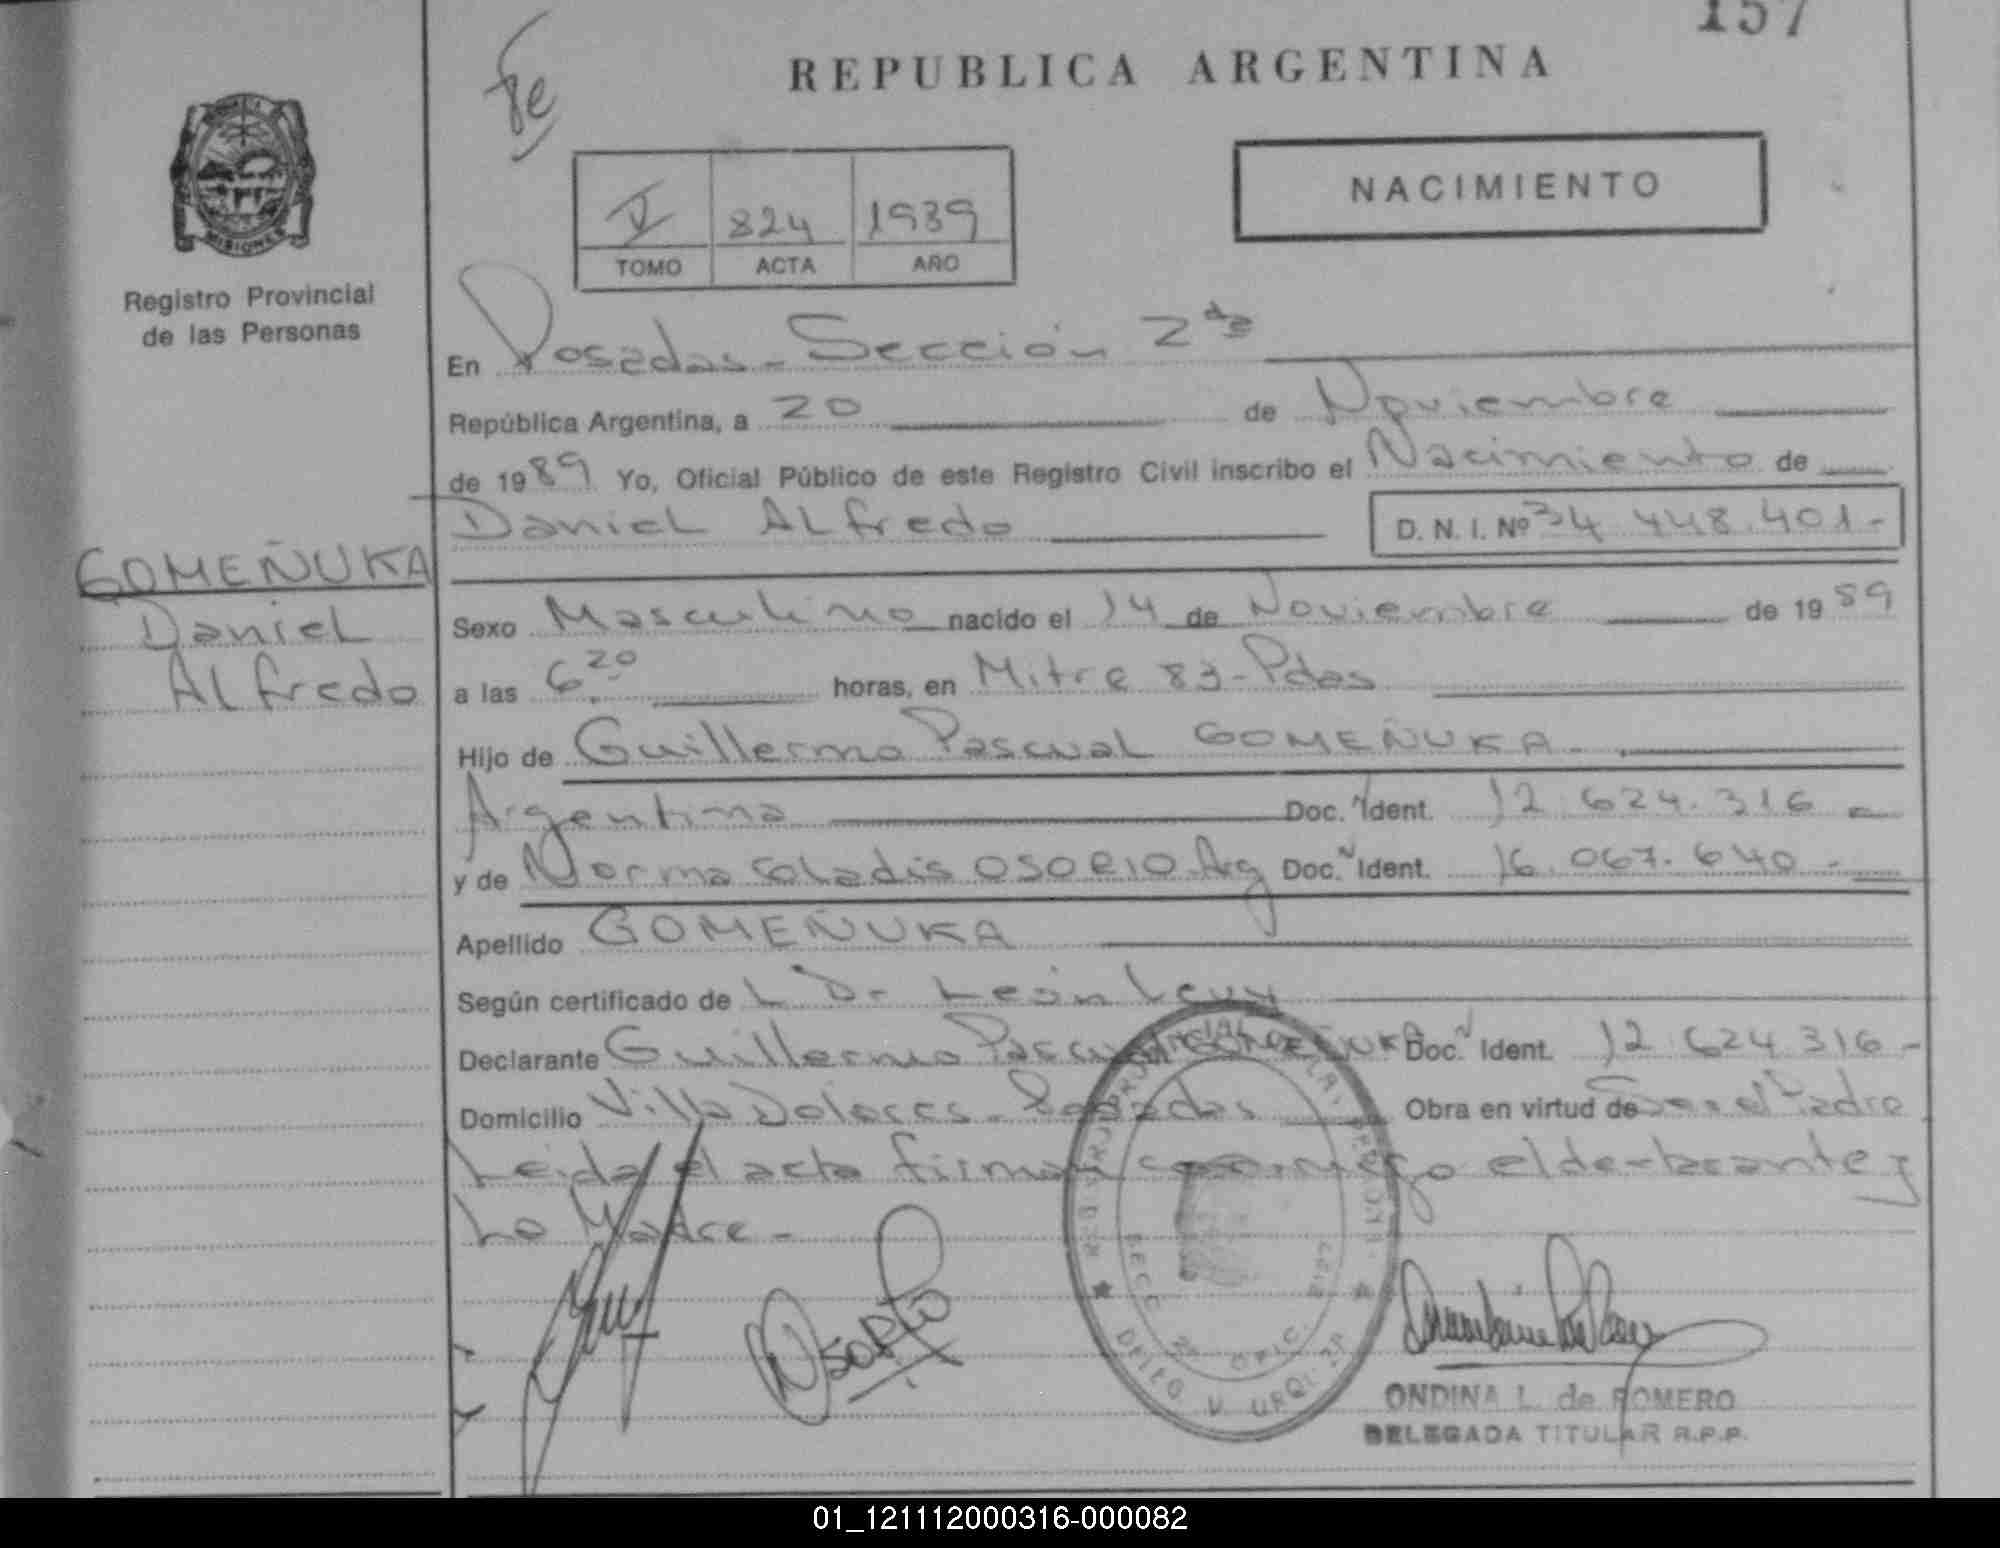 157
REPUBLICA ARGENTINA
NACIMIENTO
V 824 1989
TOMO ACTA AÑO
MISIONES
Registro Provincial
de las Personas
En Posadas - Sección 2da
República Argentina, a 20 de Noviembre
de 1989 Yo, Oficial Público de este Registro Civil inscribo el Nacimiento de
Daniel Alfredo D. N. I. Nº 34 448.401-
GOMEÑUKA
Daniel
Alfredo
Sexo Masculino nacido el 14 de Noviembre de 1989
a las 6.20 horas, en Mitre 83 - Pdas
Hijo de Guillermo Pascual GOMEÑUKA -
Argentina Doc. Ident. 12.624.316 -
y de Norma Gladis OSORIO Arg Doc. Ident. 16.067.640 -
Apellido GOMEÑUKA
Según certificado de L Dr León Levy
Declarante Guillermo Pascual GOMEÑUKA Doc. Ident. 12.624.316 -
Domicilio Villa Dolores - Posadas Obra en virtud de Ser el Padre
Leida el acta firman conmigo el declarante y
La Madre -
Osorio
SECC. 2ª OFIC.
DELEG. V. URQ.
ONDINA L. de ROMERO
DELEGADA TITULAR R.P.P.
01_121112000316-000082